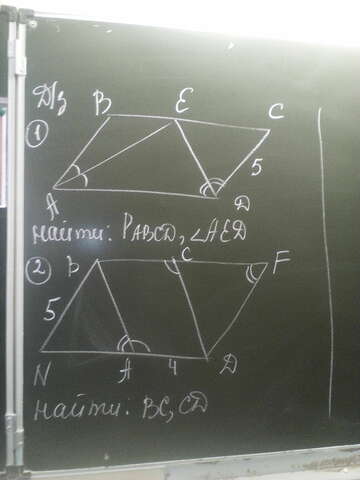 Д/з
B E C
①
5
A D
найти: PABCD, ∠AED
② B C F
5
N A 4 D
найти: BC, CD